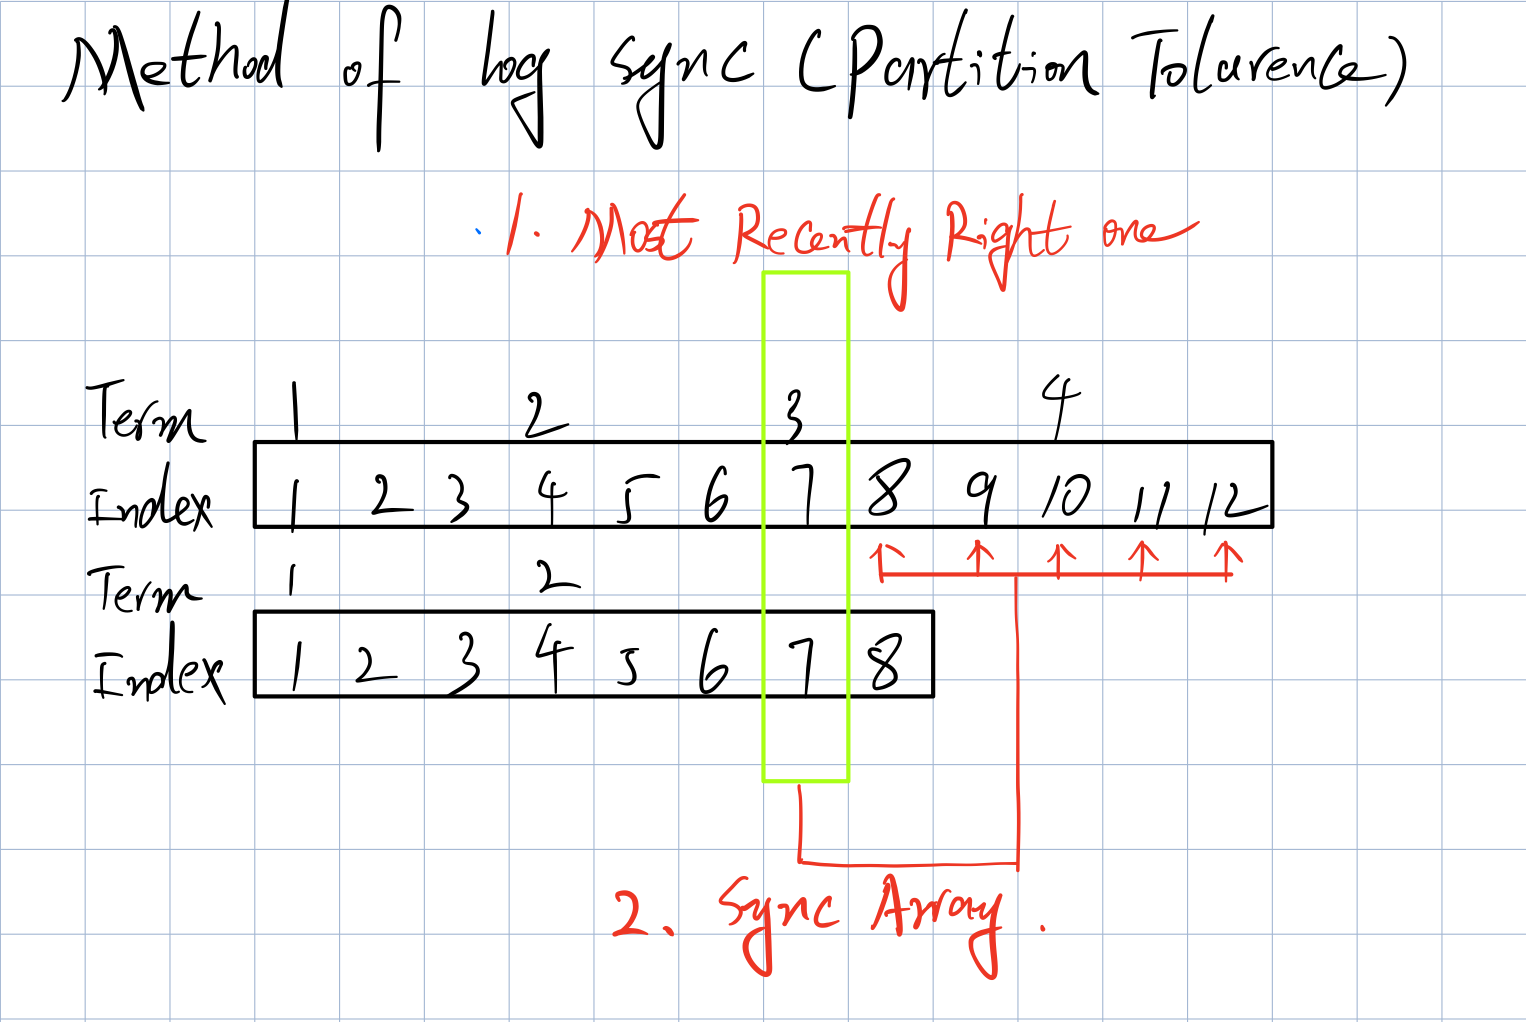 Method of log sync (Partition Tolarence)
1. Most Recently Right one
Term 1 2 3 4
Index 1 2 3 4 5 6 7 8 9 10 11 12
Term 1 2
Index 1 2 3 4 5 6 7 8
2. Sync Array.